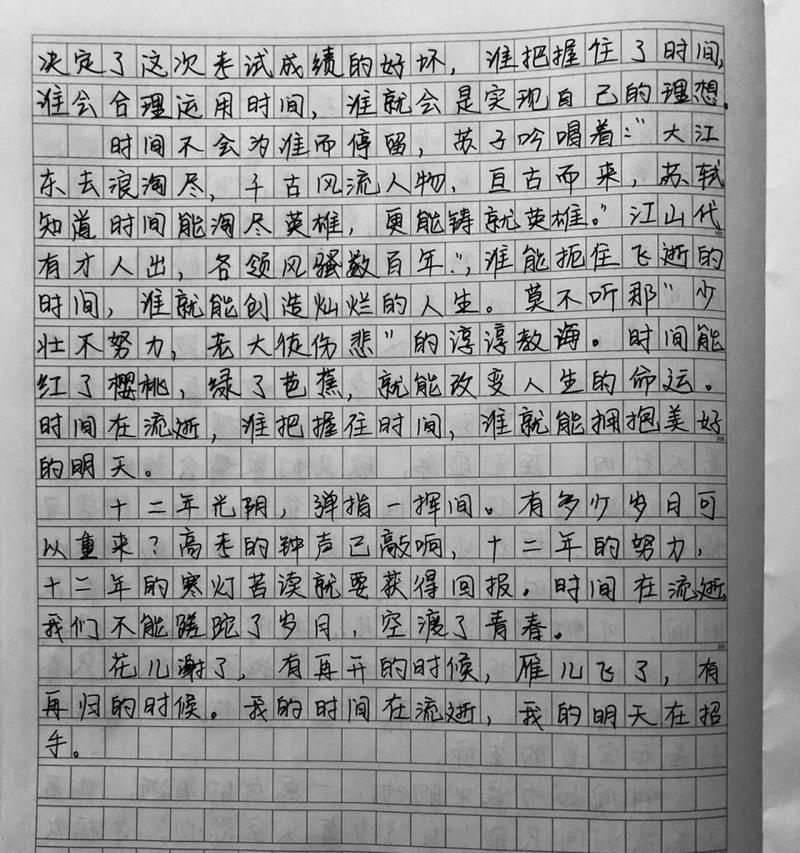 决定了这次考试成绩的好坏，谁把握住了时间，
谁会合理运用时间，谁就会是实现自己的理想。
时间不会为谁而停留，苏子吟唱着：“大江
东去浪淘尽，千古风流人物，亘古而来，苏轼
知道时间能淘尽英雄，更能铸就英雄。”江山代
有才人出，各领风骚数百年”，谁能扼住飞逝的
时间，谁就能创造灿烂的人生。莫不听那“少
壮不努力，老大徒伤悲”的淳淳教诲。时间能
红了樱桃，绿了芭蕉，就能改变人生的命运。
时间在流逝，谁把握住时间，谁就能拥抱美好
的明天。
十二年光阴，弹指一挥间。有多少岁月可
以重来？高考的钟声已敲响，十二年的努力，
十二年的寒灯苦读就要获得回报。时间在流逝，
我们不能蹉跎了岁月，空渡了青春。
花儿谢了，有再开的时候，雁儿飞了，有
再归的时候。我的时间在流逝，我的明天在招
手。